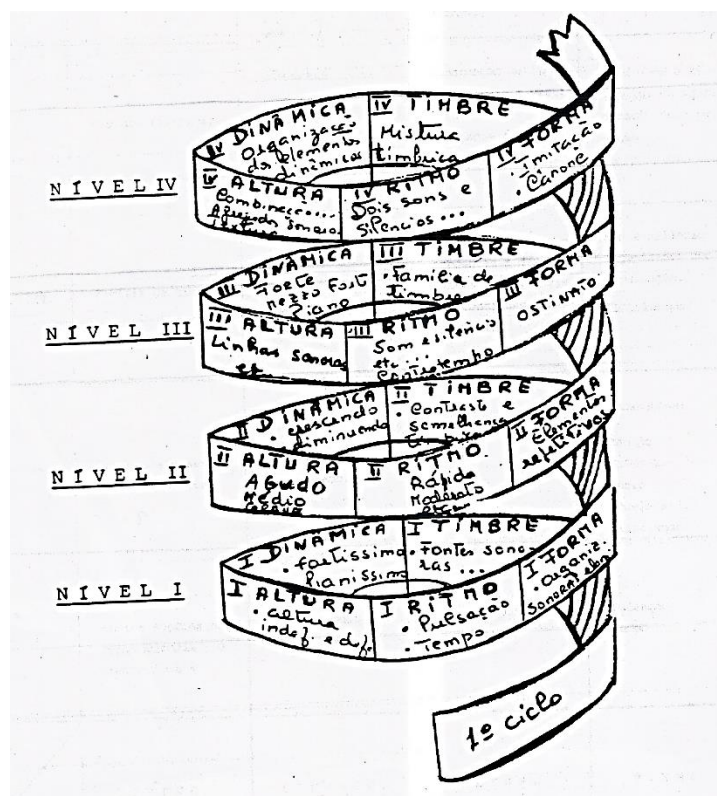 NÍVEL IV
IV DINÂMICA
Organização
dos elementos
dinâmicos
IV TIMBRE
Mistura
tímbrica
IV FORMA
• Imitação
• Canone
IV ALTURA
Combinação...
Agregados sonoros
IV RITMO
Dois sons e
silencios...
NÍVEL III
III DINÂMICA
Forte
mezzo fort
Piano
III TIMBRE
• Familia de
timbre
III FORMA
OSTINATO
III ALTURA
Linhas sonoras
III RITMO
Som e silencio
etc...
Contratempo
NÍVEL II
II DINÂMICA
• crescendo
diminuendo
II TIMBRE
• Contraste e
semelhança
II FORMA
Elementos
repetitivos
II ALTURA
AGUDO
Médio
Grave
II RITMO.
Rápido
Moderato
NÍVEL I
I DINÂMICA
• fortissimo
Pianissimo
I TIMBRE
• Fontes sono-
ras ...
I FORMA
• Organiz.
sonoras elem.
I ALTURA
• altura
indef. e def.
I RITMO
• Pulsação
• Tempo
1º ciclo